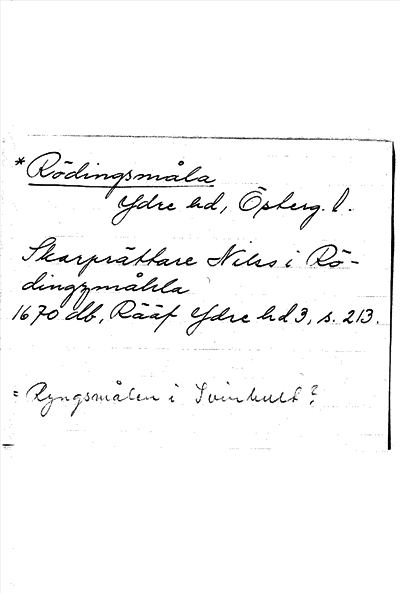 *Rödingsmåla
Ydre hd, Österg. l.
Skarprättare Nils i Rö-
dingzmåhla
1670 db, Rääf Ydre hd 3, s. 213.
= Ryngsmålen i Svinhult?